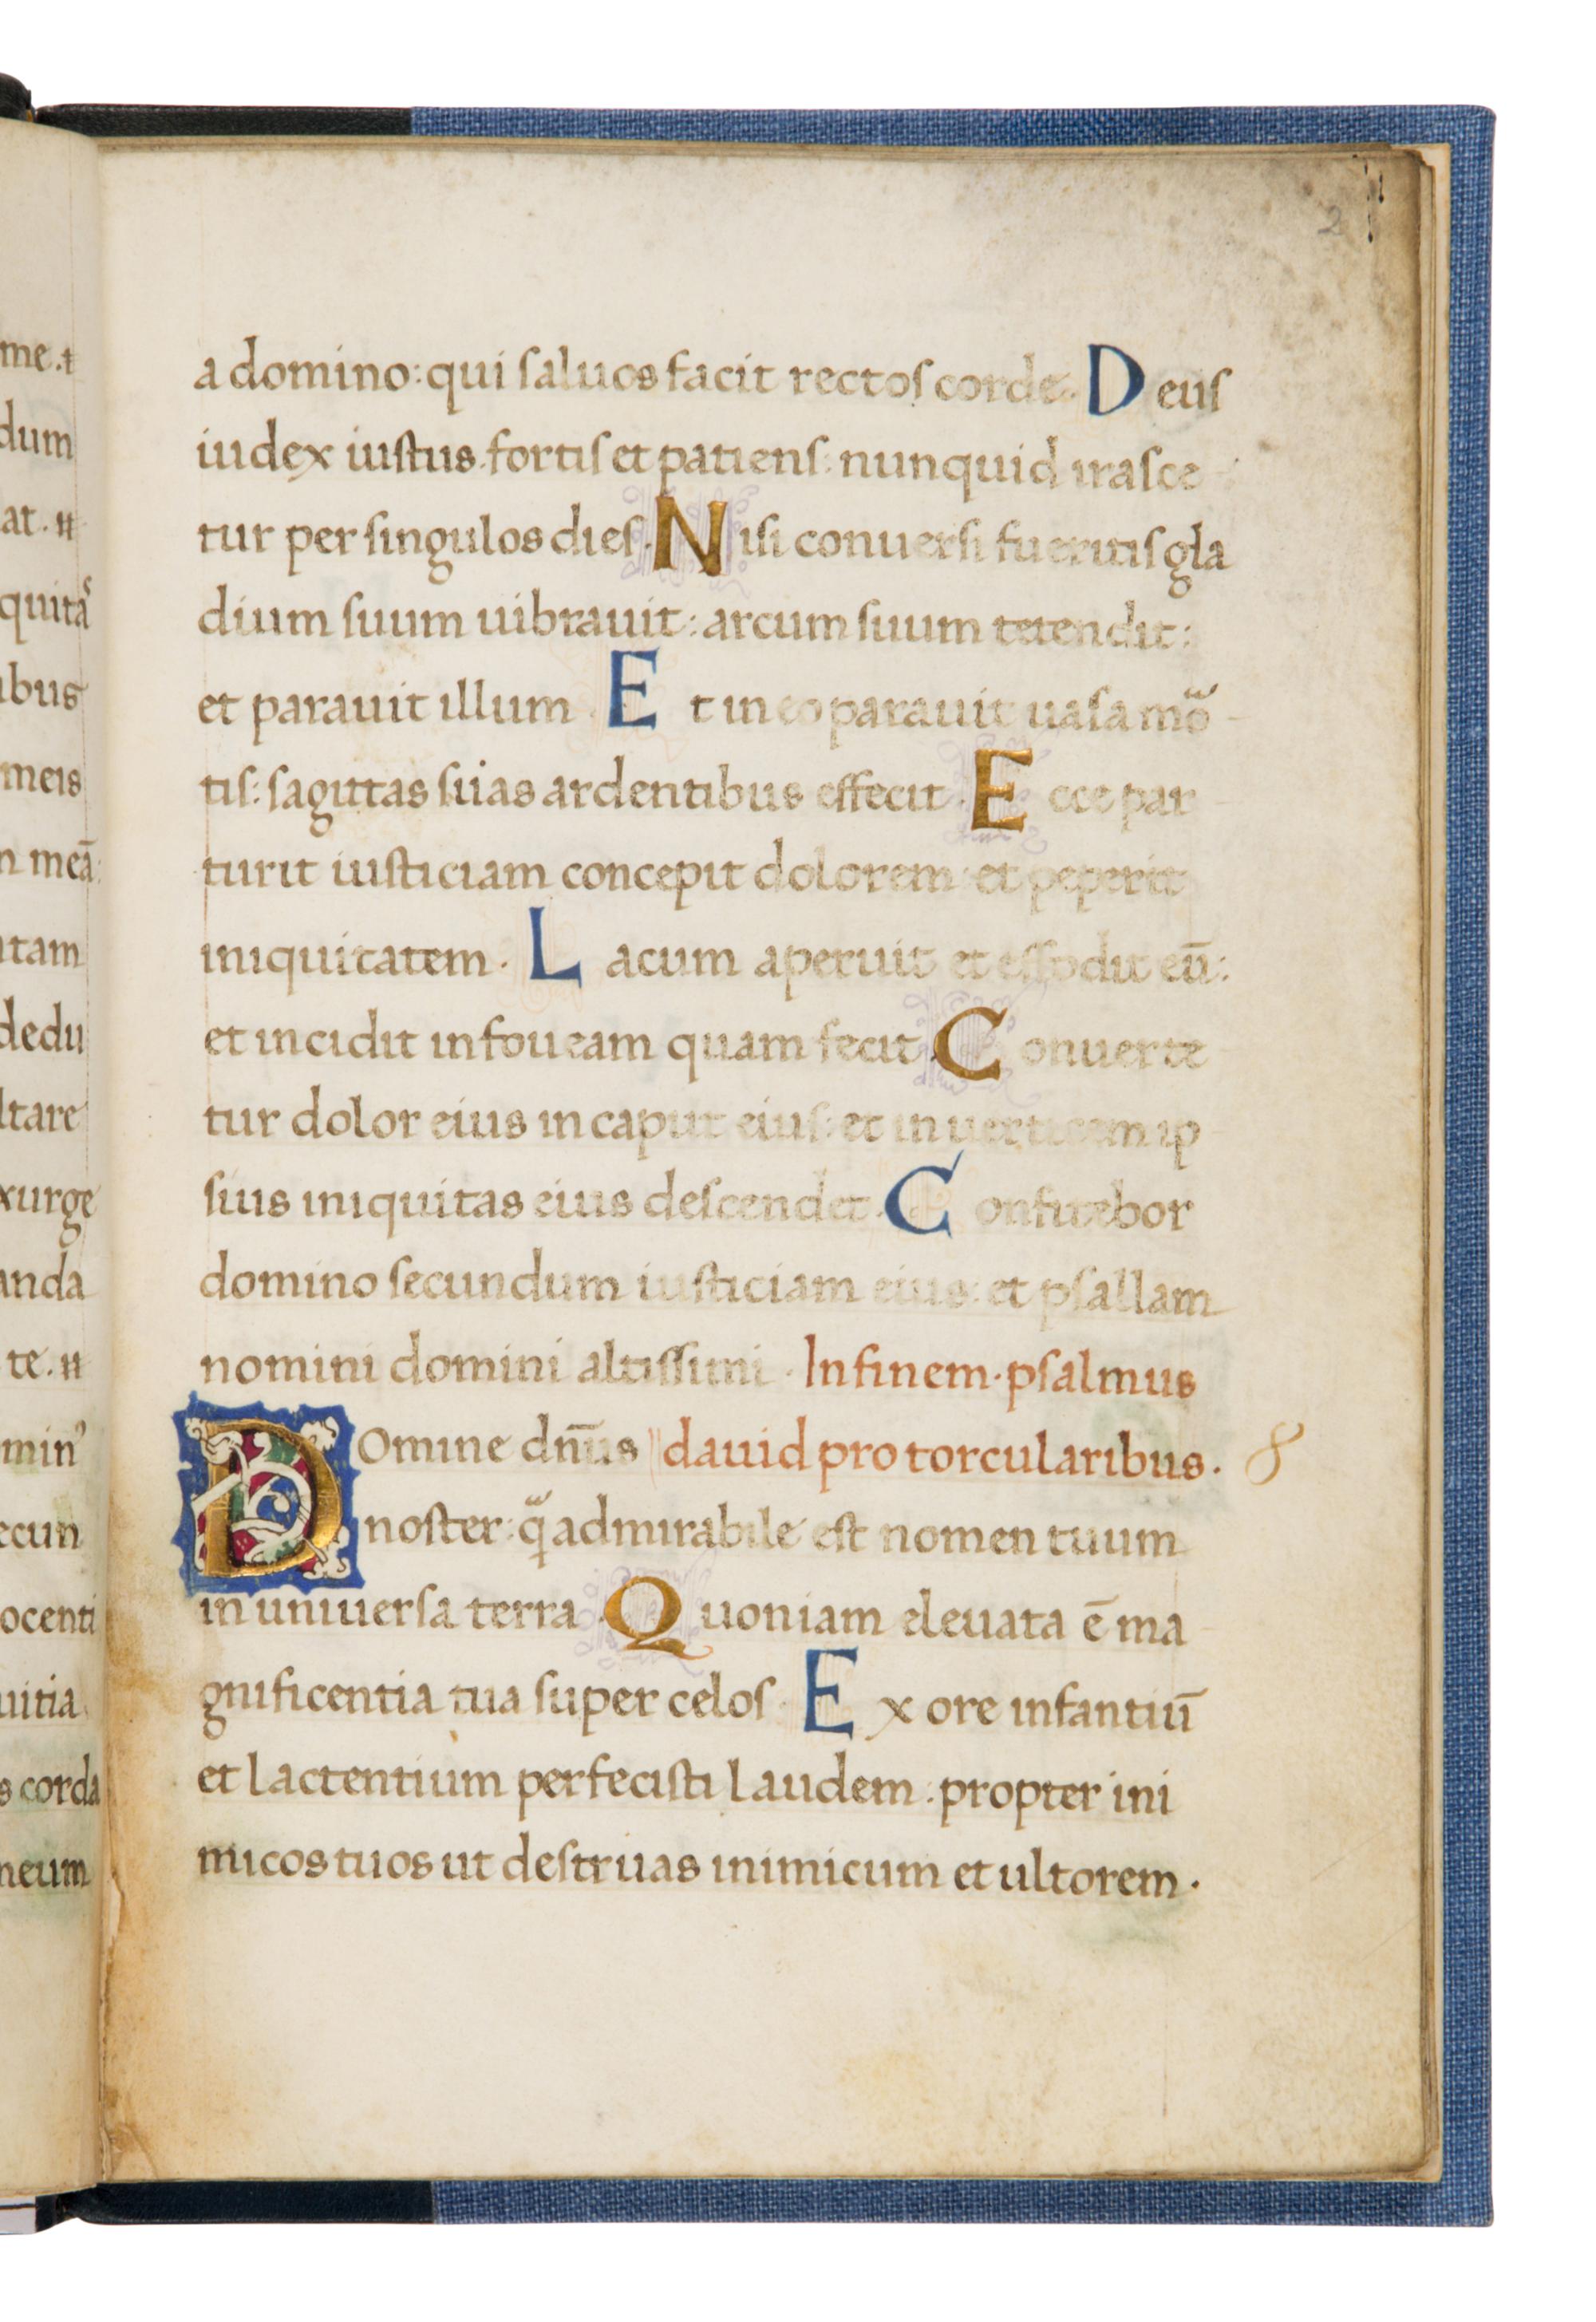 2
a domino: qui ſaluos facit rectoſ corde. Deuſ
iudex iuſtus. fortiſ et patienſ: nunquid iraſce
tur per ſingulos dieſ. Niſi conuerſi fueritiſ gla
dium ſuum uibrauit: arcum ſuum tetendit:
et parauit illum. Et in eo parauit uaſa mo̅r
tiſ: ſagittas ſuas ardentibus effecit. Ecce par
turit iuſticiam concepit dolorem: et peperit
iniquitatem. Lacum aperuit et effodit eu̅:
et incidit in foueam quam fecit. Conuerte
tur dolor eius in caput eiuſ: et in uerticem ip
ſius iniquitas eius deſcendet. Confitebor
domino ſecundum iuſticiam eius: et pſallam
nomini domini altiſſimi. In finem. pſalmus
DOmine dn̅us dauid pro torcularibus. 8
noſter: qᷓ admirabile eſt nomen tuum
in uniuerſa terra. Quoniam eleuata e̅ ma
gnificentia tua ſuper celoſ. Ex ore infantiu̅
et lactentium perfeciſti laudem: propter ini
micos tuos ut deſtruas inimicum et ultorem.